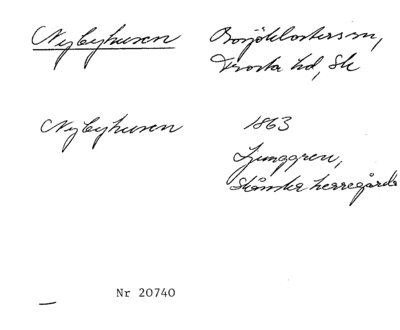 Nybyhusen Bosjöklosters sn,
Frosta hd, Sk
Nybyhusen 1863
Ljunggren,
Skånska herregårda
Nr 20740